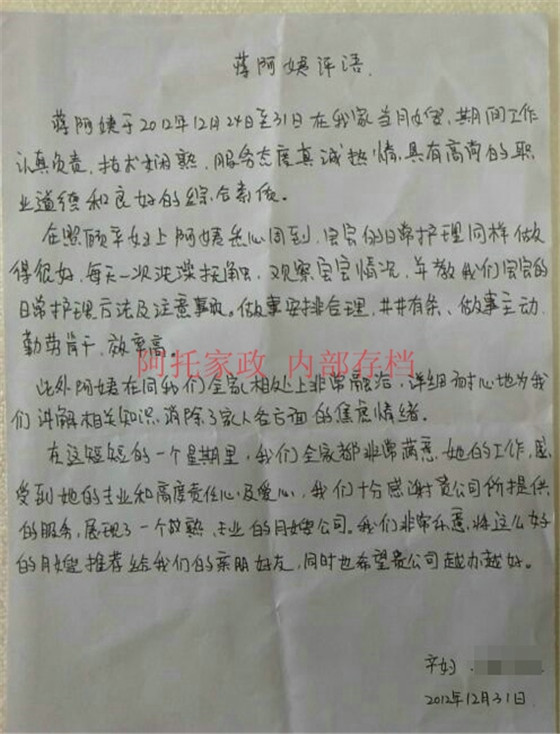 蒋阿姨评语.
蒋阿姨于2012年12月24日至31日在我家当月嫂, 期间工作
认真负责, 技术娴熟, 服务态度真诚热情, 具有高尚的职
业道德和良好的综合素质。
在照顾辛妈上阿姨悉心周到, 宝宝的日常护理同样做
得很好, 每天一次洗澡抚触, 观察宝宝情况, 并教我们宝宝的
日常护理方法及注意事项。做事安排合理, 井井有条、做事主动,
勤劳肯干, 效率高。
阿托家政 内部存档
此外阿姨在同我们全家相处上非常融洽, 详细耐心地为我
们讲解相关知识, 消除了家人各方面的焦虑情绪。
在这短短的一个星期里, 我们全家都非常满意她的工作, 感
受到她的专业和高度责任心及爱心, 我们十分感谢贵公司所提供
的服务, 展现了一个成熟、专业的月嫂公司。我们非常乐意将这么好
的月嫂推荐给我们的亲朋好友, 同时也希望贵公司越办越好。
辛妈
2012年12月31日.